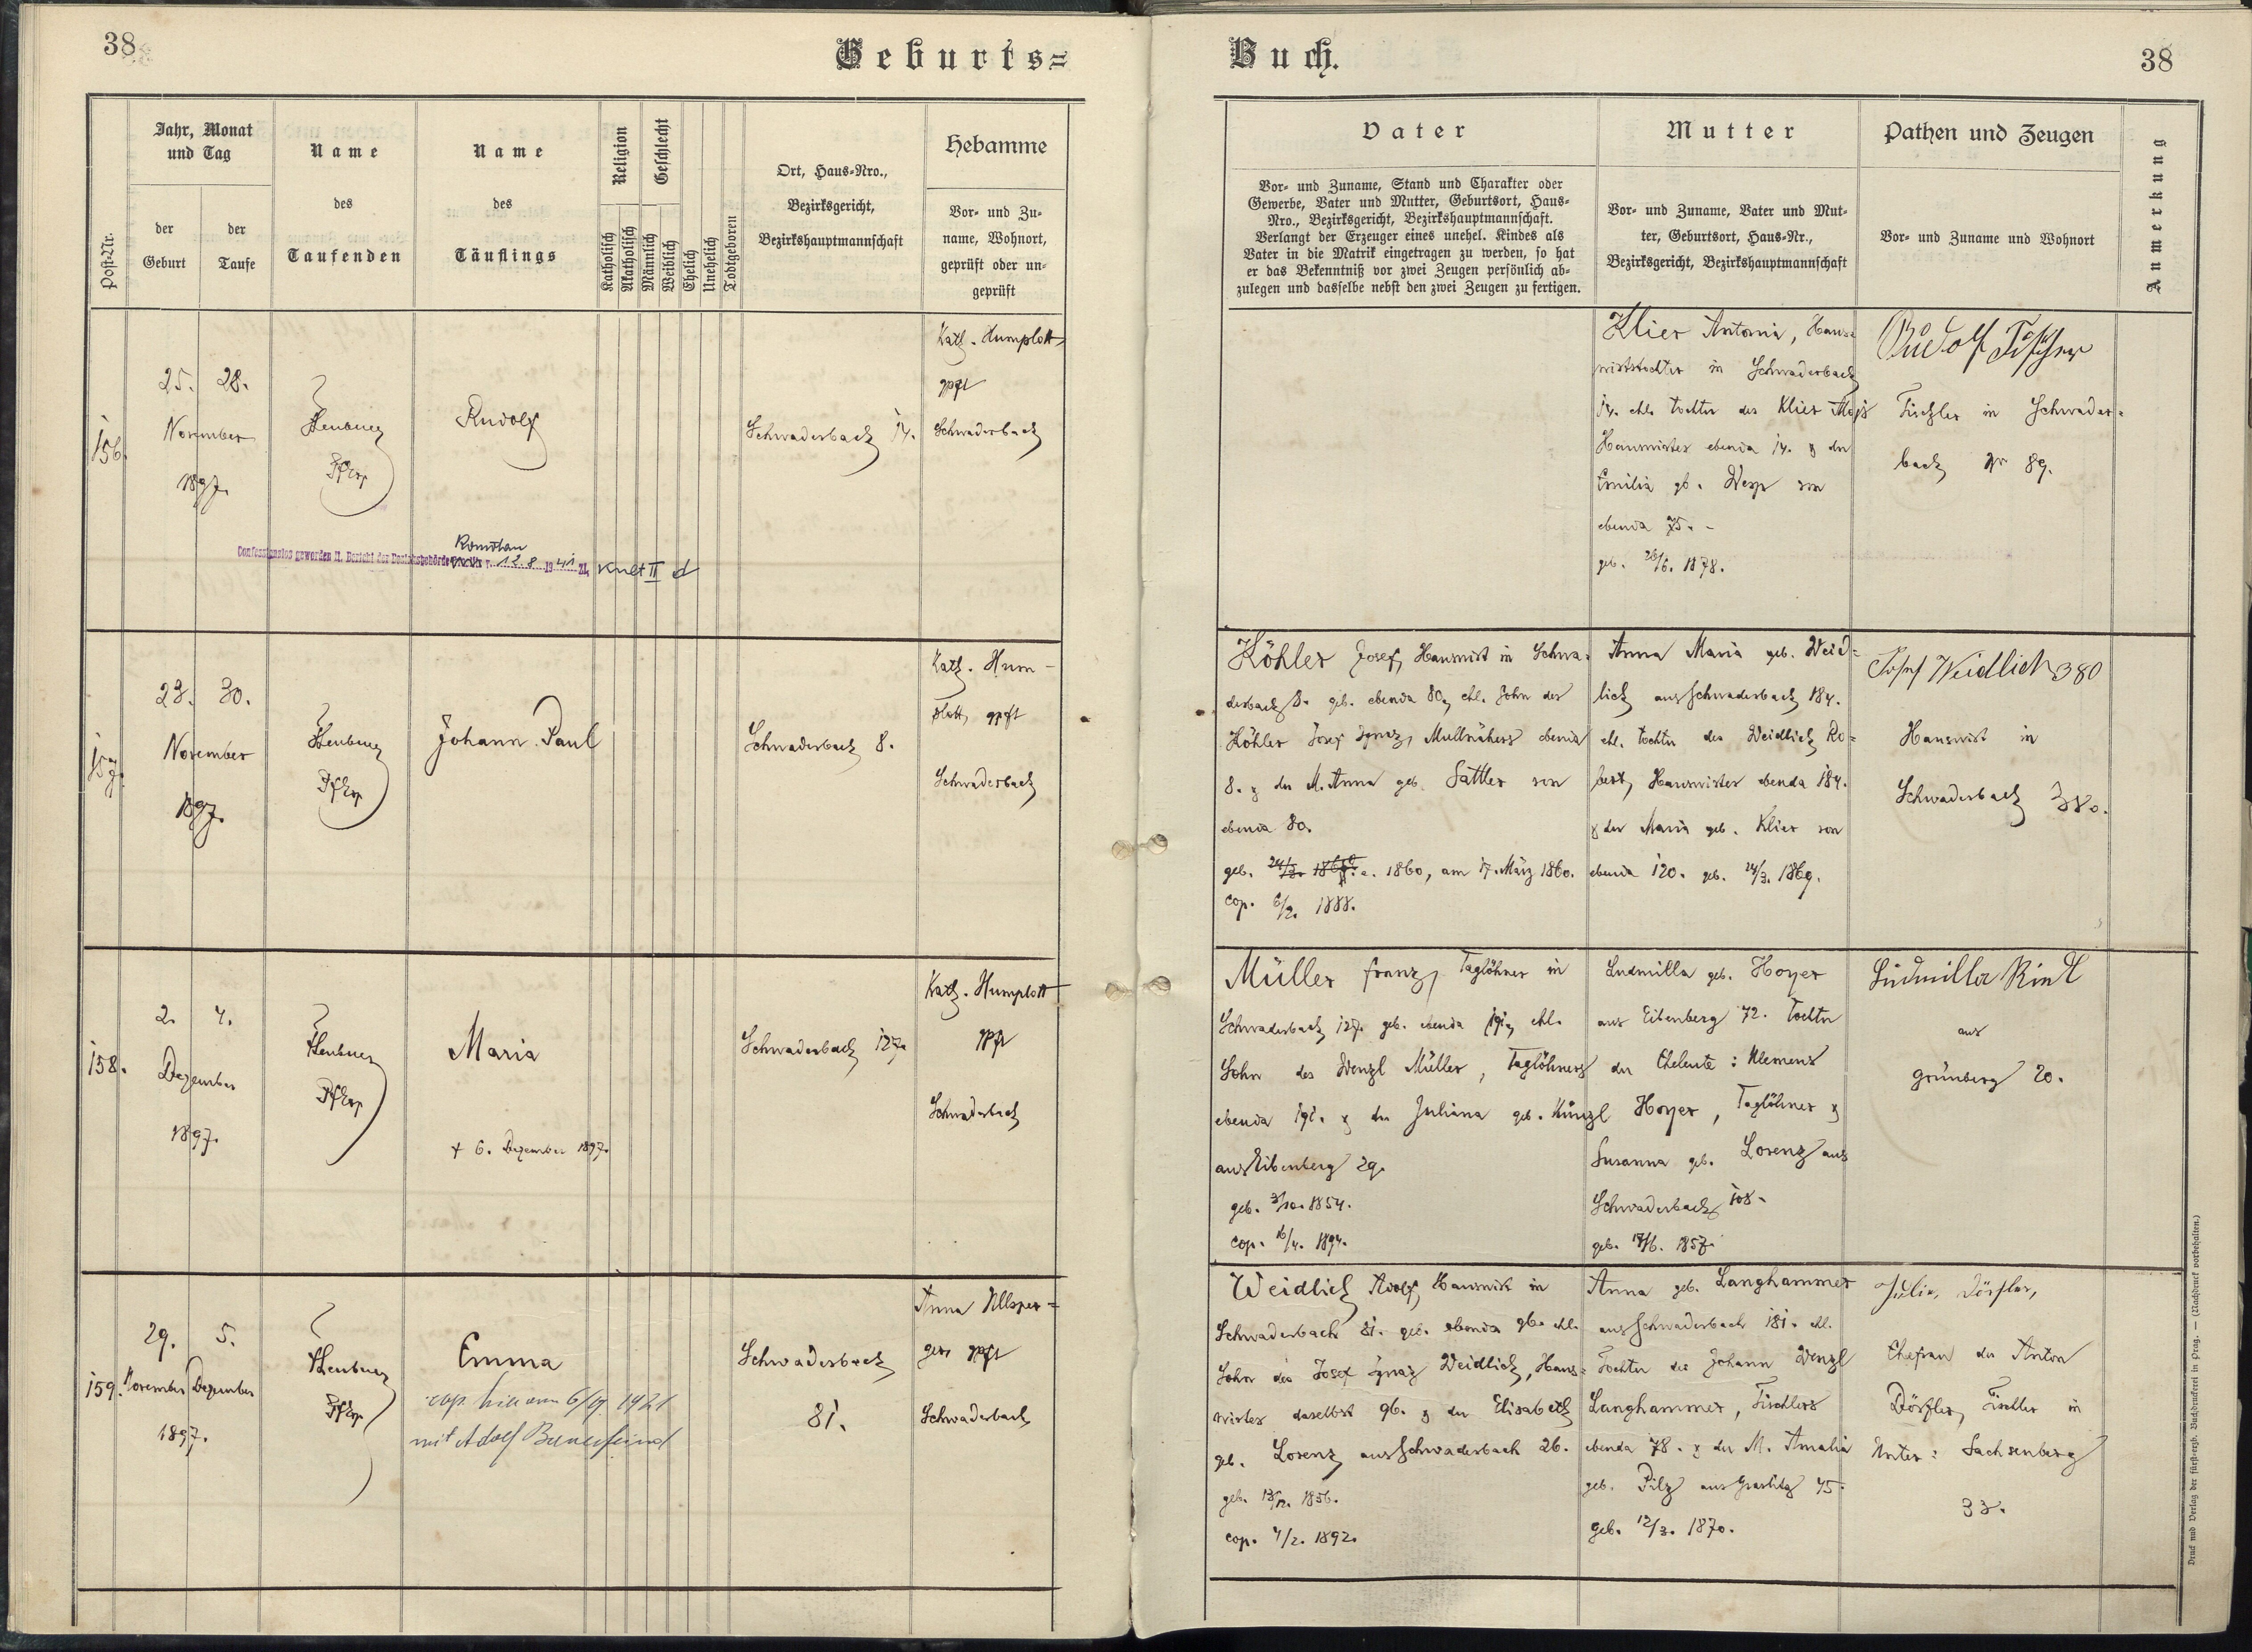 38
Geburts=
Buch.
38
Post-Nr.
Jahr, Monat
und Tag
der
Geburt
der
Taufe
Name
des
Taufenden
Name
des
Täuflings
Religion
Geschlecht
Katholisch
Akatholisch
Männlich
Weiblich
Ehelich
Unehelich
Todtgeboren
Ort, Haus-Nro.,
Bezirksgericht,
Bezirkshauptmannschaft
Hebamme
Vor- und Zu-
name, Wohnort,
geprüft oder un-
geprüft
Vater
Vor- und Zuname, Stand und Charakter oder
Gewerbe, Vater und Mutter, Geburtsort, Haus-
Nro., Bezirksgericht, Bezirkshauptmannschaft.
Verlangt der Erzeuger eines unehel. Kindes als
Vater in die Matrik eingetragen zu werden, so hat
er das Bekenntniß vor zwei Zeugen persönlich ab-
zulegen und dasselbe nebst den zwei Zeugen zu fertigen.
Mutter
Vor- und Zuname, Vater und Mut-
ter, Geburtsort, Haus-Nr.,
Bezirksgericht, Bezirkshauptmannschaft
Pathen und Zeugen
Vor- und Zuname und Wohnort
Anmerkung
156.
25. 28.
November
1897.
Rudolf
Confessionslos geworden lt. Bericht der Bezirksbehörde
Komotau
v. 12.8. 1941 Zl. Kult II d
Schwaderbach 14.
Kath. Humplott
gpft
Schwaderbach
Klier Antonia, Haus=
wirtstochter in Schwaderbach
14. ehl. Tochter des Klier Alois
Hauswirtes ebenda 14. & der
Emilia gb. Weps von
ebenda 75.
geb. 26/6. 1878.
Rudolf Fischer
Tischler in Schwader=
bach Nr 89.
157.
23. 30.
November
1897.
Johann Paul
Schwaderbach 8.
Kath. Hum-
plott, gpft
Schwaderbach
Köhler Josef, Hauswirt in Schwa=
derbach 8. geb. ebenda 80, ehl. Sohn des
Köhler Josef Ignaz, ebenda
8. & der M. Anna geb. Sattler von
ebenda 80.
geb. 1860, am 17. März 1860.
cop. 6/2. 1888.
Anna Maria geb. Weid=
lich aus Schwaderbach 184.
ehl. Tochter des Weidlich Ro=
bert, Hauswirtes ebenda 184.
& der Maria geb. Klier von
ebenda 120. geb. 24/3. 1869.
Josef Weidlich 380
Hauswirt in
Schwaderbach 380.
158.
2. 4.
Dezember
1897.
Maria
+ 6. Dezember 1897.
Schwaderbach 127.
Kath. Humplott
gpft
Schwaderbach
Müller Franz, Taglöhner in
Schwaderbach 127. geb. ebenda 191, ehl.
Sohn des Wenzl Müller, Taglöhners
ebenda 191. & der Juliana geb. Künzl
aus Eibenberg 29.
geb. 3/10. 1854.
cop. 16/4. 1894.
Ludmilla geb. Hoyer
aus Eibenberg 72. Tochter
der Eheleute: Klemens
Hoyer, Taglöhner &
Susanna geb. Lorenz aus
Schwaderbach 108.
geb. 18/6. 1857.
Ludmilla Riedl
aus
Grünberg 20.
159.
29. 5.
November Dezember
1897.
Emma
cop. hier am 6/9. 1921
mit Adolf Bauerfeind
Schwaderbach
81.
Anna
gpft
Schwaderbach
Weidlich Adolf, Hauswirt in
Schwaderbach 81. geb. ebenda 96. ehl.
Sohn des Josef Ignaz Weidlich, Haus=
wirtes daselbst 96. & der Elisabeth
geb. Lorenz aus Schwaderbach 26.
geb. 13/12. 1856.
cop. 4/2. 1892.
Anna geb. Langhammer
aus Schwaderbach 181. ehl.
Tochter des Johann Wenzl
Langhammer, Tischlers
ebenda 78. & der M. Amalia
geb. Pilz aus Graslitz 45.
geb. 12/3. 1870.
Julie, Dörfler,
Ehefrau des Anton
Dörfler, Tischler in
Unter= Sachsenberg
33.
Druck und Verlag der fürst-erzb. Buchdruckerei in Prag. — (Nachdruck vorbehalten.)